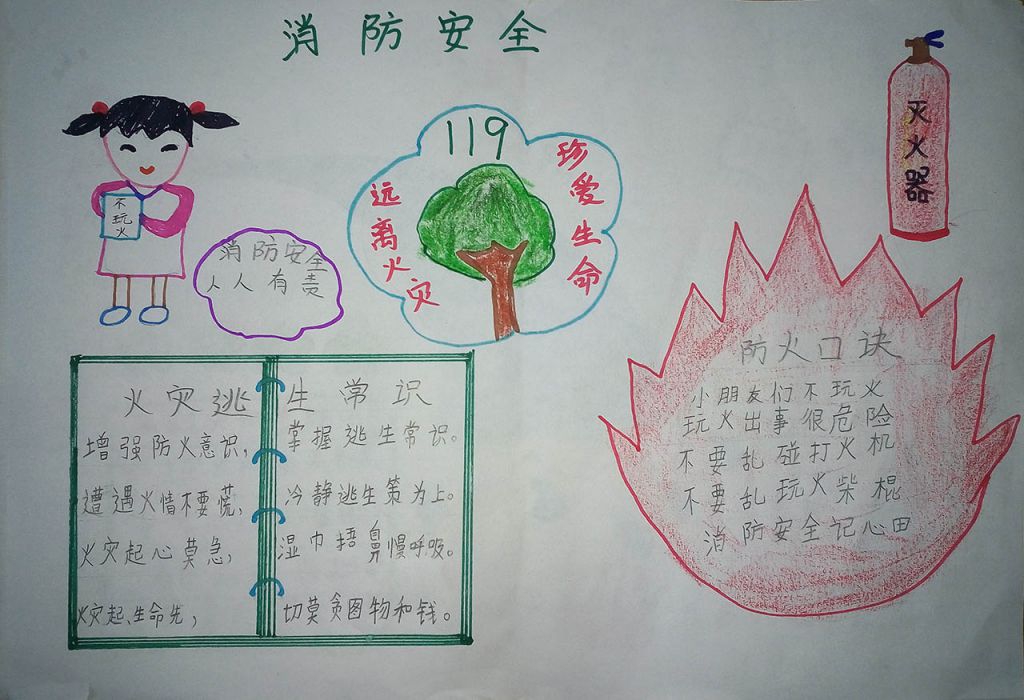 消防安全
灭火器
119
远离火灾
珍爱生命
不玩火
消防安全
人人有责
火灾逃生常识
增强防火意识，掌握逃生常识。
遭遇火情不要慌，冷静逃生策为上。
火灾起心莫急，湿巾捂鼻慢呼吸。
火灾起、生命先，切莫贪图物和钱。
防火口诀
小朋友们不玩火
玩火出事很危险
不要乱碰打火机
不要乱玩火柴棍
消防安全记心田